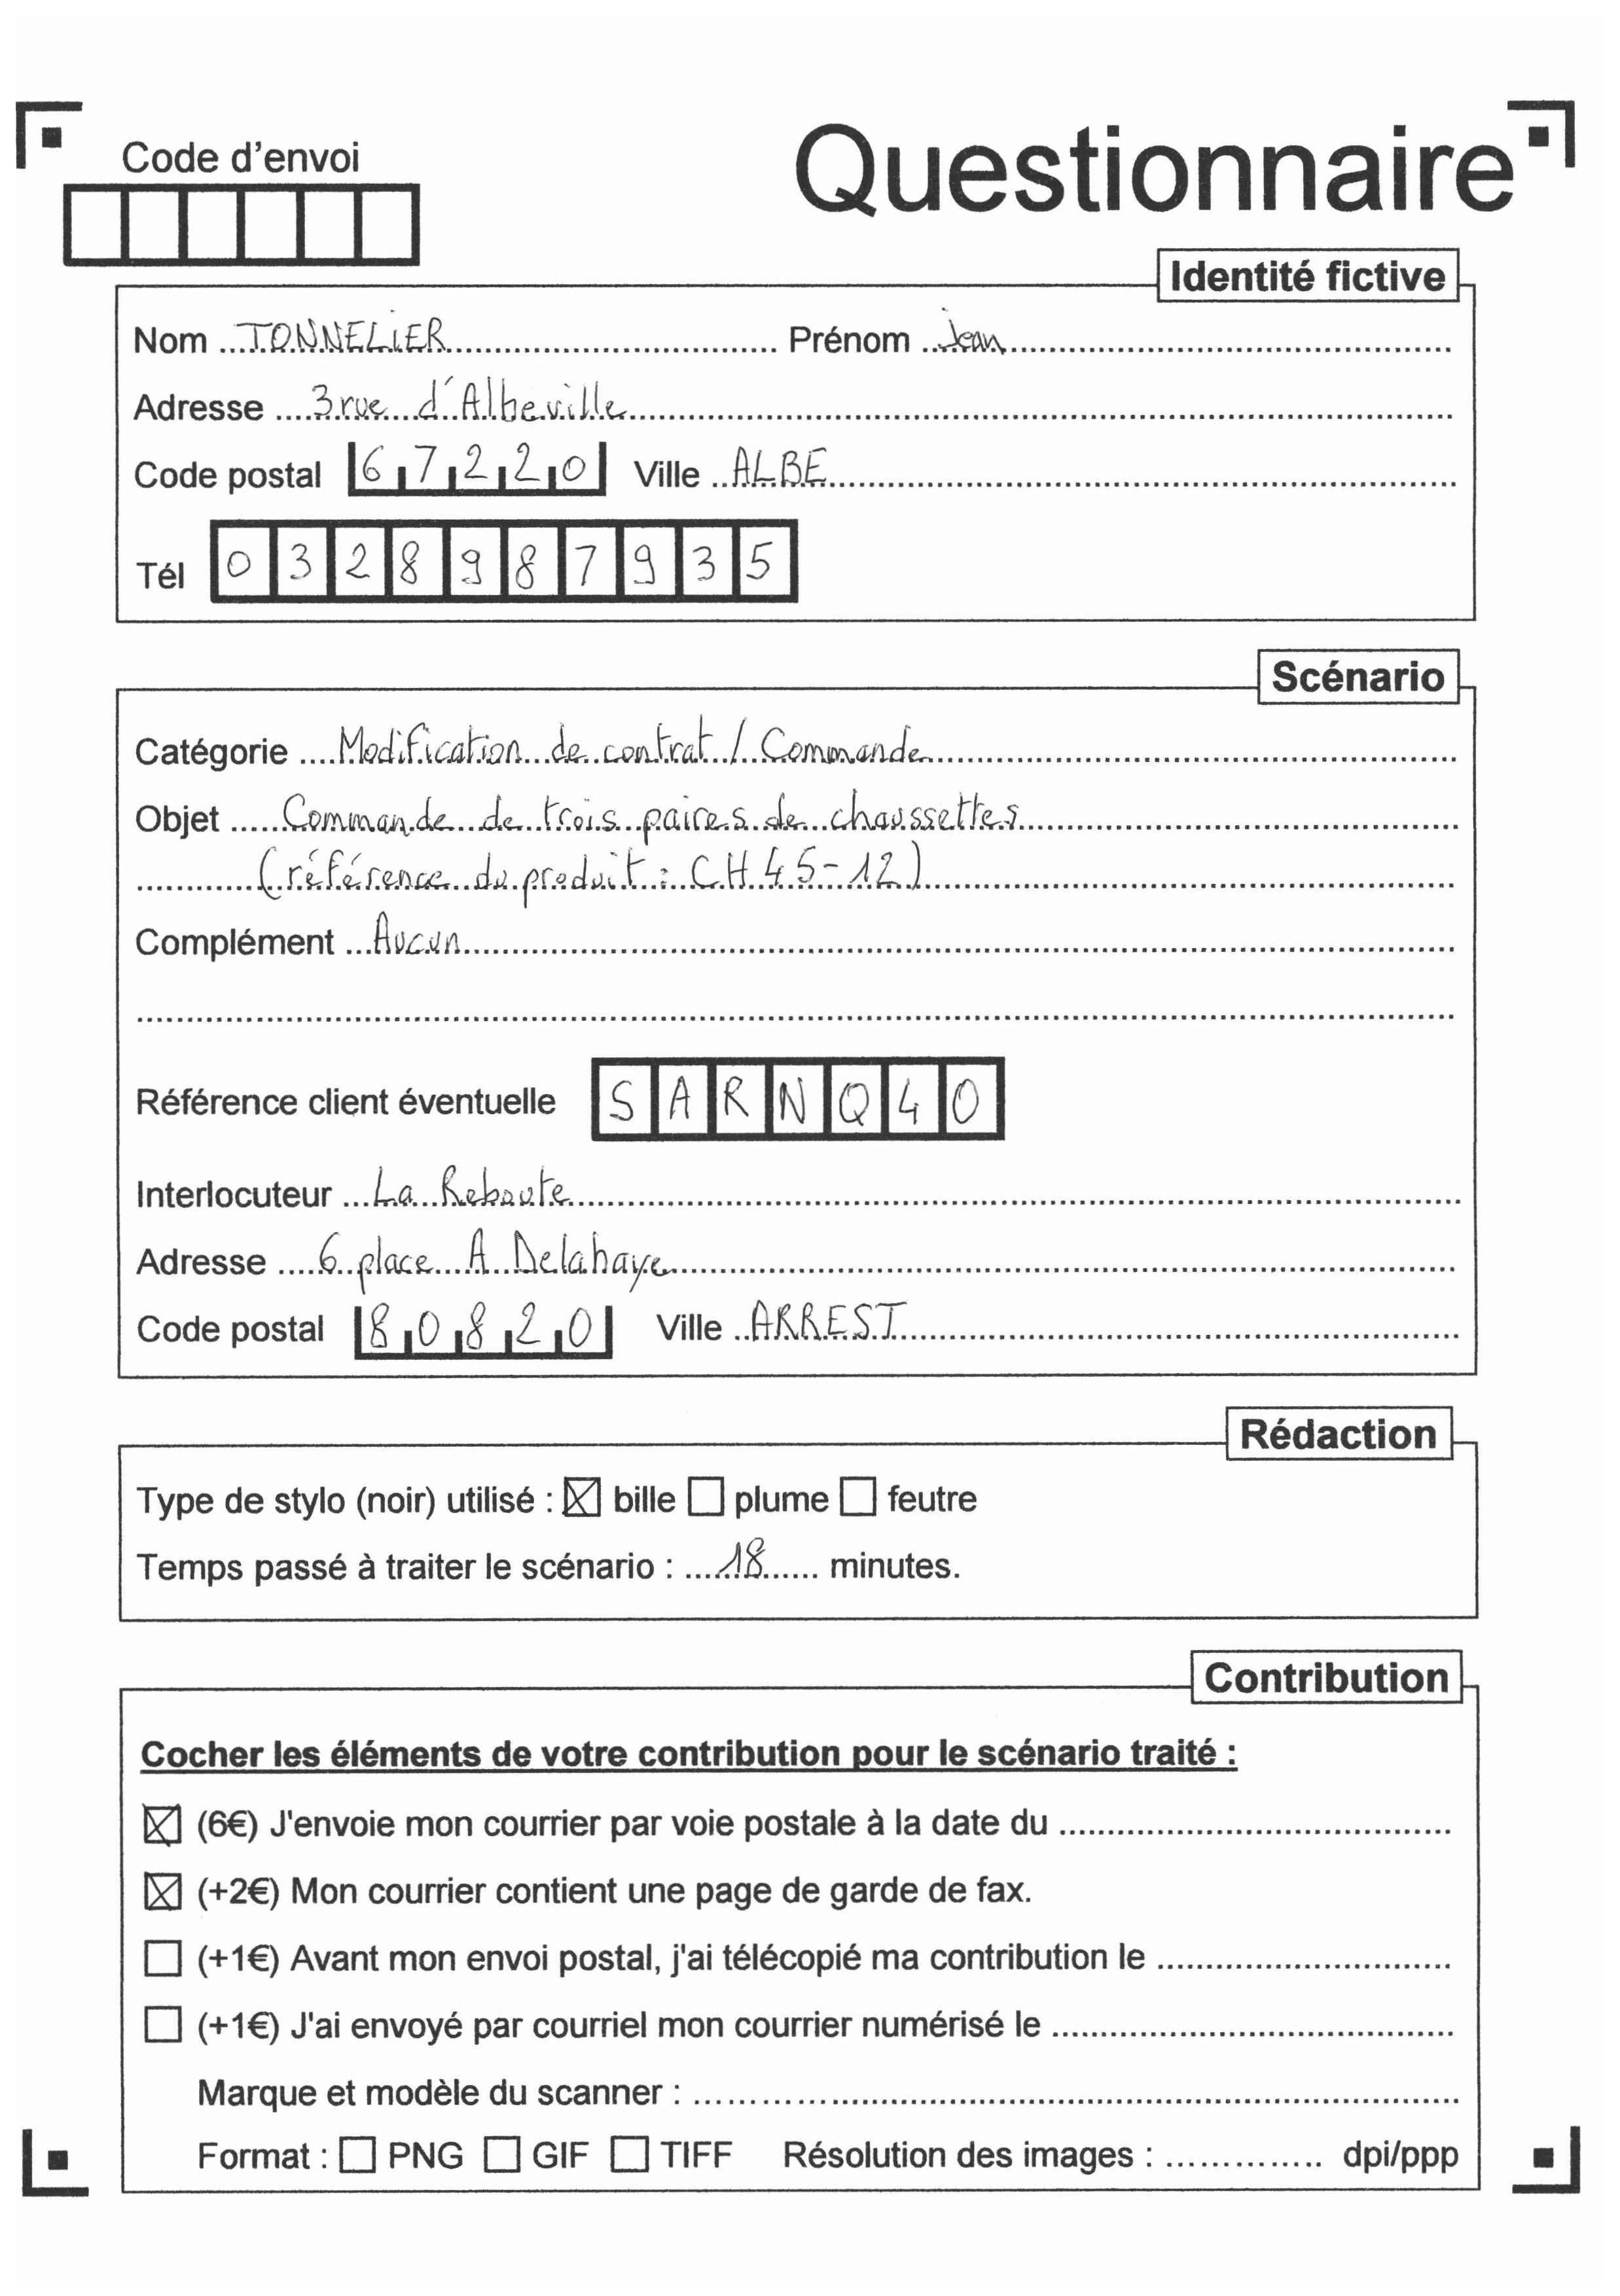 Code d'envoi
Questionnaire
Identité fictive
Nom TONNELIER Prénom Jean
Adresse 3 rue d'Albeville
Code postal 67220 Ville ALBE
Tél 0328987935
Scénario
Catégorie Modification de contrat / Commande
Objet Commande de trois paires de chaussettes
(référence du produit : CH45-12)
Complément Aucun
Référence client éventuelle SARNQ40
Interlocuteur La Reboute
Adresse 6 place A Delahaye
Code postal 80820 Ville ARREST
Rédaction
Type de stylo (noir) utilisé : ☒ bille ☐ plume ☐ feutre
Temps passé à traiter le scénario : 18 minutes.
Contribution
Cocher les éléments de votre contribution pour le scénario traité :
☒ (6€) J'envoie mon courrier par voie postale à la date du
☒ (+2€) Mon courrier contient une page de garde de fax.
☐ (+1€) Avant mon envoi postal, j'ai télécopié ma contribution le
☐ (+1€) J'ai envoyé par courriel mon courrier numérisé le
Marque et modèle du scanner :
Format : ☐ PNG ☐ GIF ☐ TIFF Résolution des images : dpi/ppp